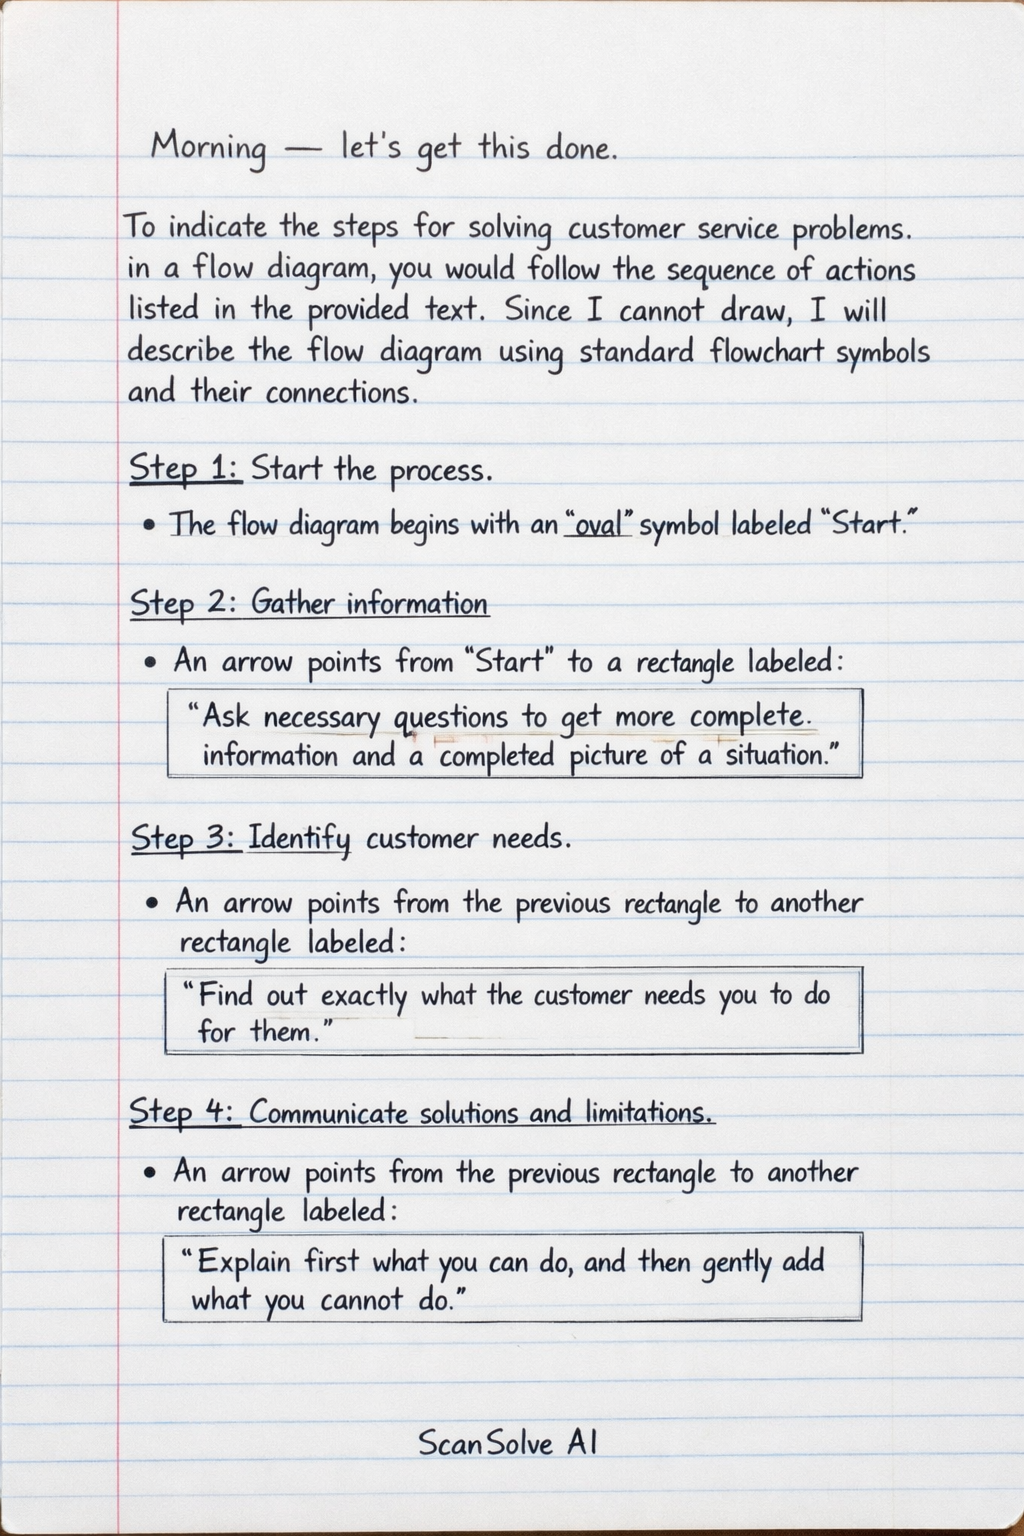 Morning — let's get this done.
To indicate the steps for solving customer service problems.
in a flow diagram, you would follow the sequence of actions
listed in the provided text. Since I cannot draw, I will
describe the flow diagram using standard flowchart symbols
and their connections.
Step 1: Start the process.
• The flow diagram begins with an “oval” symbol labeled “Start.”
Step 2: Gather information
• An arrow points from “Start” to a rectangle labeled:
“Ask necessary questions to get more complete.
information and a completed picture of a situation.”
Step 3: Identify customer needs.
• An arrow points from the previous rectangle to another
rectangle labeled:
“Find out exactly what the customer needs you to do
for them.”
Step 4: Communicate solutions and limitations.
• An arrow points from the previous rectangle to another
rectangle labeled:
“Explain first what you can do, and then gently add
what you cannot do.”
ScanSolve AI